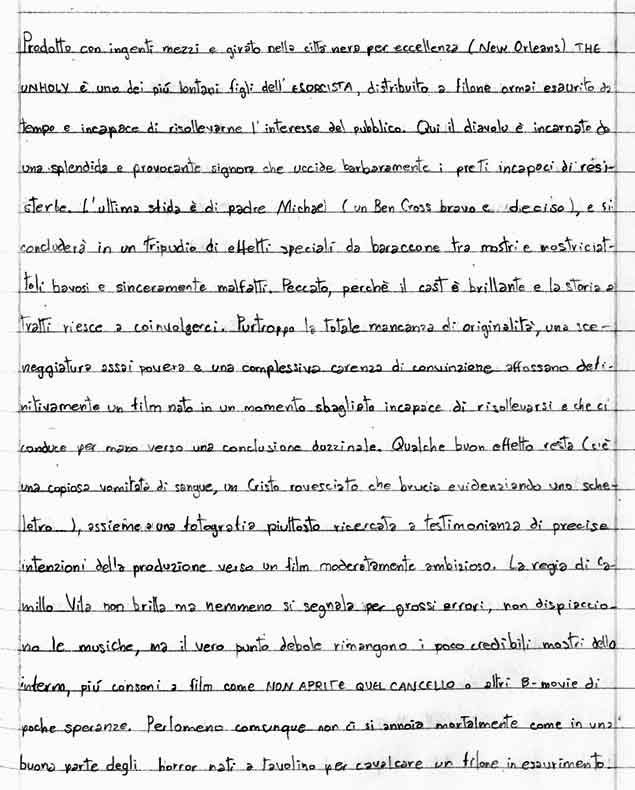 Prodotto con ingenti mezzi e girato nella città nera per eccellenza (NEW ORLEANS) THE
UNHOLY è uno dei più lontani figli dell'ESORCISTA, distribuito a filone ormai esaurito da
tempo e incapace di risollevarne l'interesse del pubblico. Qui il diavolo è incarnato da
una splendida e provocante signora che uccide barbaramente i preti incapaci di resi-
sterle. L'ultima sfida è di padre Michael (un Ben Cross bravo e deciso), e si
concluderà in un tripudio di effetti speciali da baraccone tra mostri e mostriciat-
toli bavosi e sinceramente malfatti. Peccato, perchè il cast è brillante e la storia a
tratti riesce a coinvolgerci. Purtroppo la totale mancanza di originalità, una sce-
neggiatura assai povera e una complessiva carenza di convinzione affossano defi-
nitivamente un film nato in un momento sbagliato incapace di risollevarsi e che ci
conduce per mano verso una conclusione dozzinale. Qualche buon effetto resta (c'è
una copiosa vomitata di sangue, un Cristo rovesciato che brucia evidenziando uno sche-
letro...), assieme a una fotografia piuttosto ricercata a testimonianza di precise
intenzioni della produzione verso un film moderatamente ambizioso. La regia di Ca-
millo Vila non brilla ma nemmeno si segnala per grossi errori, non dispiaccio-
no le musiche, ma il vero punto debole rimangono i poco credibili mostri dello
inferno, più consoni a film come NON APRITE QUEL CANCELLO o altri B-movie di
poche speranze. Perlomeno comunque non ci si annoia mortalmente come in una
buona parte degli horror nati a tavolino per cavalcare un filone in esaurimento.